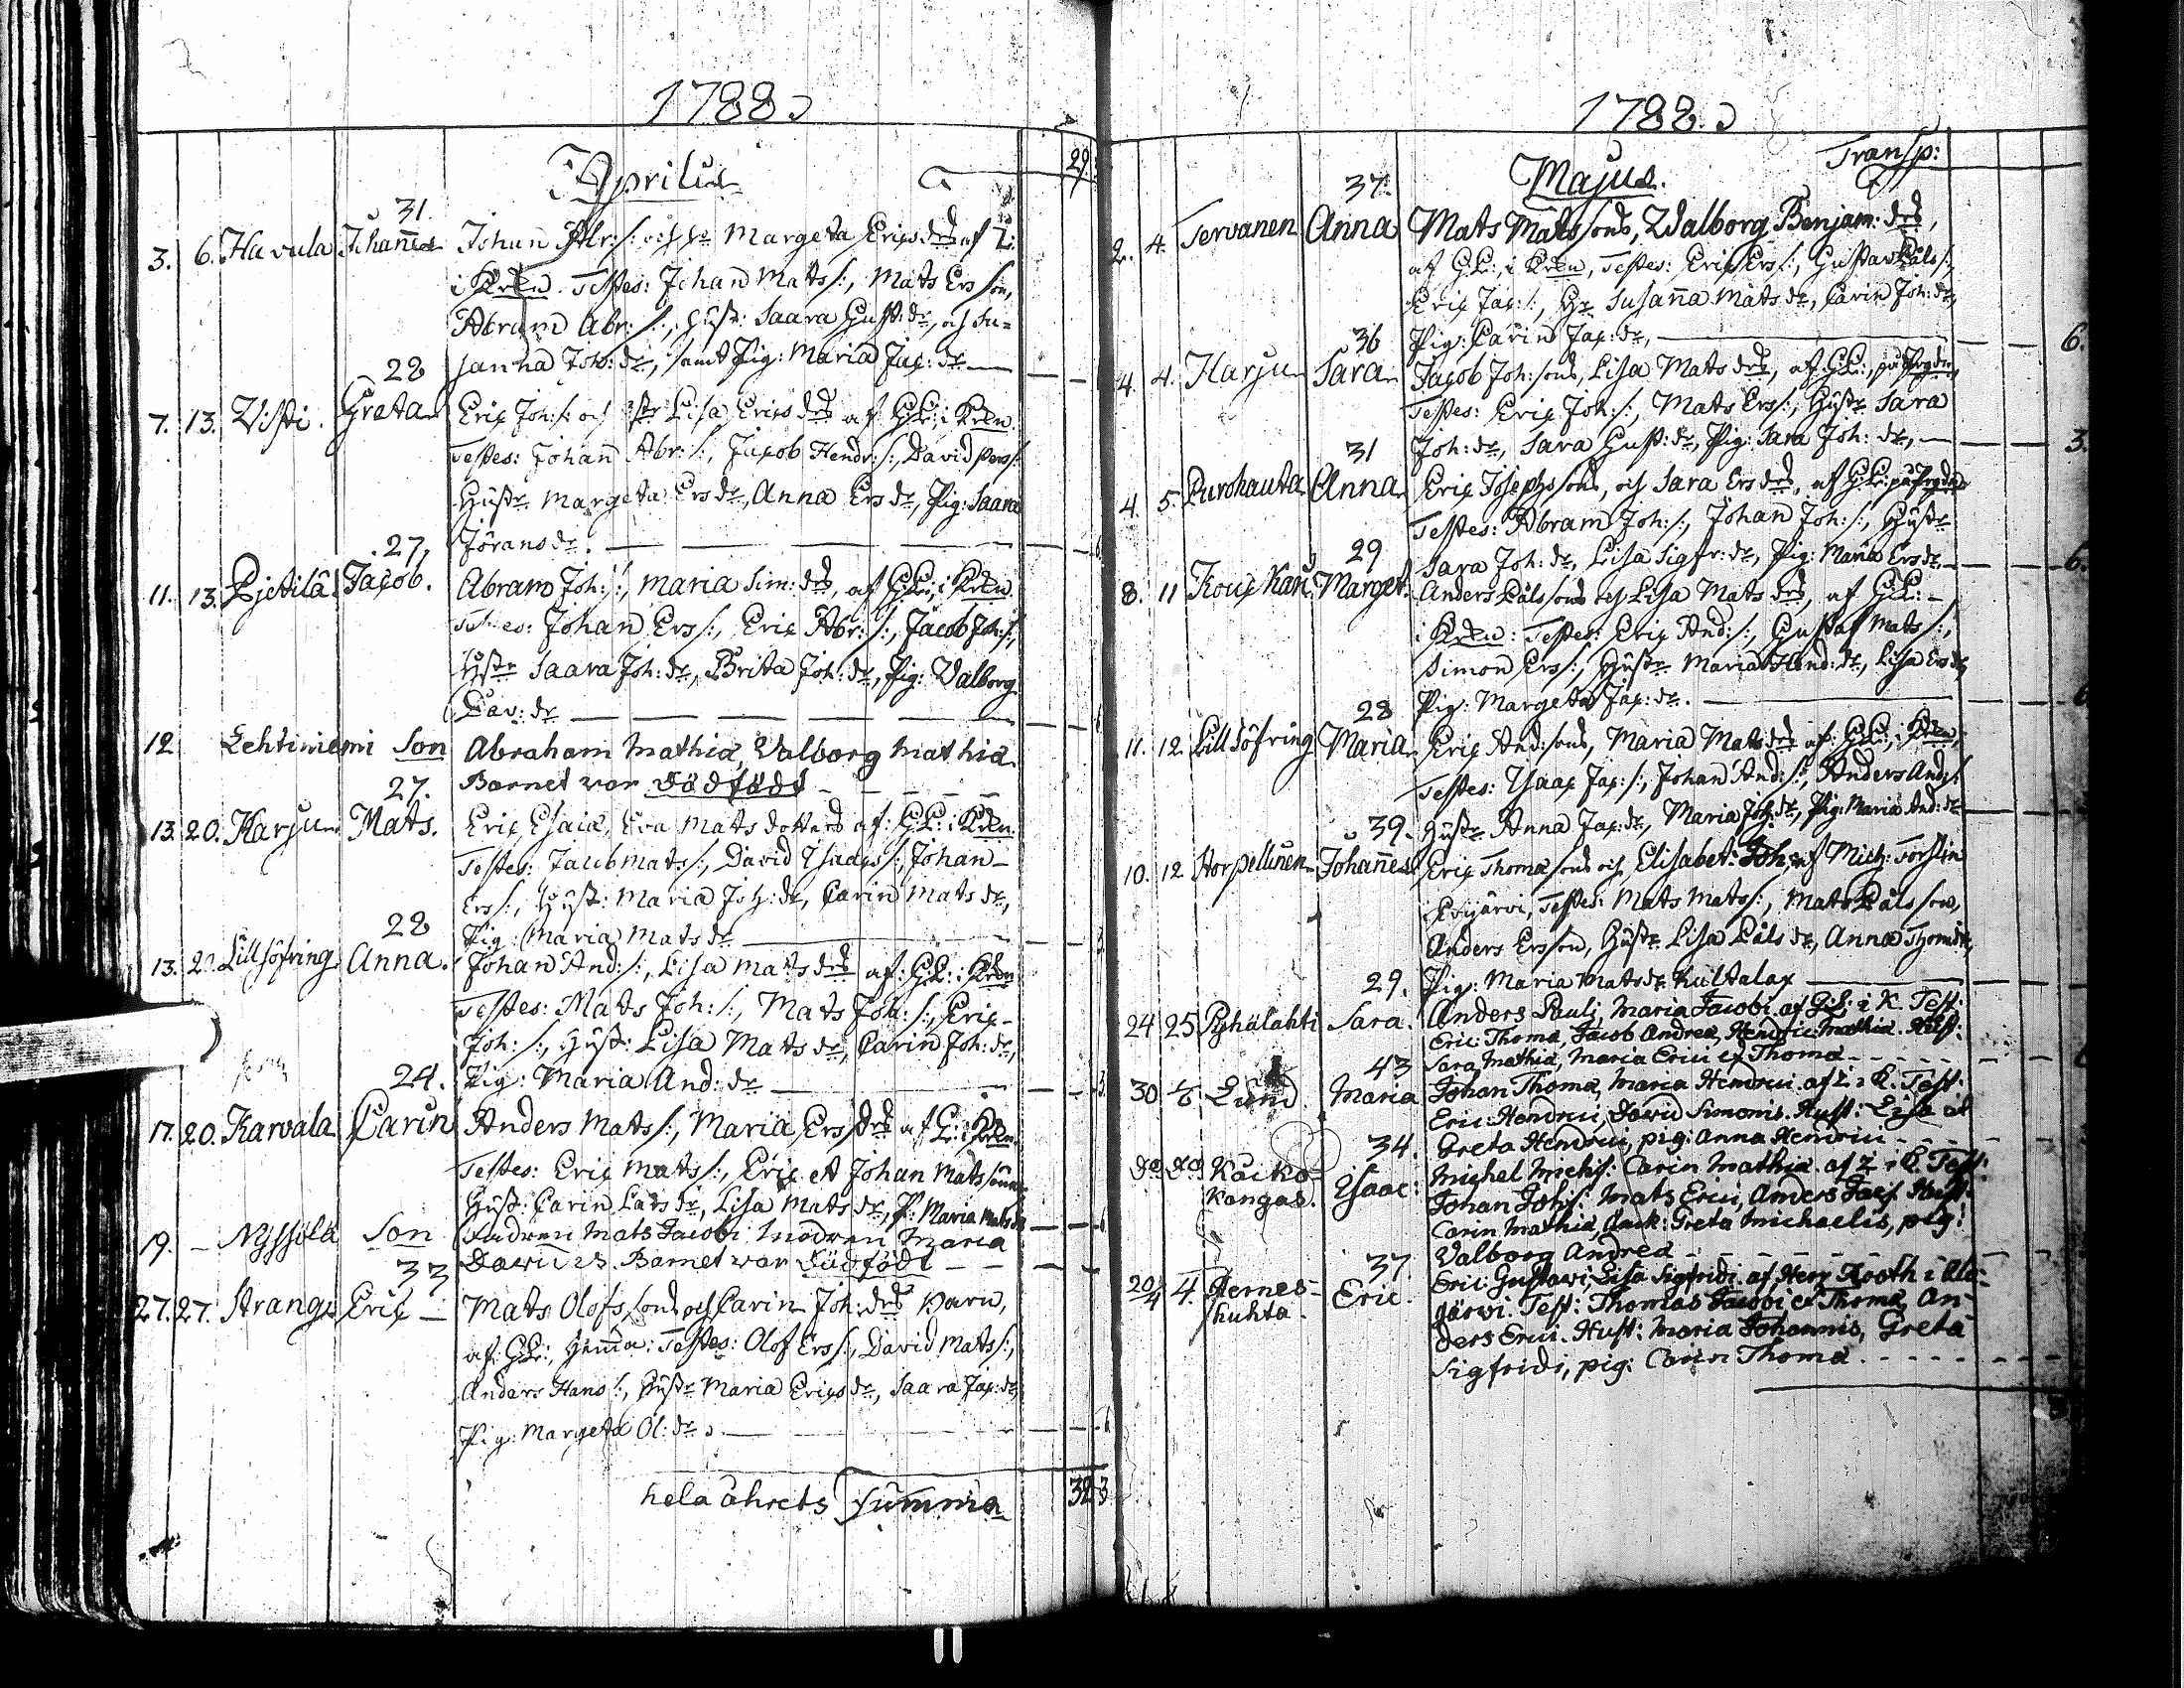 1788
Aprilis
29.
31.
3. 6. Havula Johannes Johan Abr:/: och h:u Margeta Ericsdrs af L:
i Krkn. Testes: Johan Mats/:, Mats Ersson,
Abram Abr:/:, Hust: Saara Gust:dr, och Su=
28 sanna Joh:dr, samt Pig: Maria Jac:dr
7. 13. Visti. Greta Eric Joh:/: och Lisa Ericsdrs af G.L: i Krkn.
Testes: Johan Abr:/:, Jacob Hendr:/:, David Pers/:
Hustr Margeta Ersdr, Anna Ersdr, Pig: Saara
27, Jöransdr.
11. 13. Pjetilä Jacob. Abram Joh:/:, Maria Sim:drs, af G.L:, i Krkn
Testes: Johan Ers/:, Eric Abr:/:, Jacob Joh:/:,
Hustr Saara Joh:dr, Brita Joh:dr, Pig: Valborg
Dav:dr
12 Lehtiniemi Son Abraham Mathiæ, Valborg Mathiæ
27. Barnet var Dödfödt
13. 20. Harju Mats. Eric Esaiæ, Eva Matsdotters af: G.L: i Krkn.
Testes: Jacob Mats/:, David Isaacs/:, Johan
Ers/:, Hust: Maria Joh:dr, Carin Matsdr,
28 Pig: Maria Matsdr
13. 20. Lillsöfring Anna. Johan And:/:, Lisa Matsdrs af: G.L: i Krkn
Testes: Mats Joh:/:, Mats Joh:/:, Eric
Joh:/:, Hust: Lisa Matsdr, Carin Joh:dr,
24. Pig: Maria And:dr
17. 20. Karvala Carin Anders Mats/:, Maria Ersdrs af L: i Krkn
Testes: Eric Mats/:, Eric et Johan Matssöner
Hust: Carin Larsdr, Lisa Matsdr, P: Maria Matsdr
19. – Nyssölä Son Fadren Mats Jacobi Modren Maria
33 Davidis. Barnet var Dödfödt
27. 27. Strang Eric Mats Olofssons och Carin Joh:drs barn,
af: G.L:, hemma: Testes: Olof Ers/:, David Mats/:,
Anders Hans/:, Hustr Maria Ericsdr, Saara Jac:dr,
Pig: Margeta Ol:dr
hela åhrets Summa 32 3
1788
Majus.
Transp:
37.
2. 4. Tervanen Anna Mats Matssons, Walborg Benjam:drs,
af G.L:, i Krkn, Testes: Eric Ers/:, Gustav Påls/:,
Eric Jac:/:, Hr Susanna Matsdr, Carin Joh:dr,
36 Pig: Carin Jac:dr, 6.
4. 4. Harju Sara Jacob Joh:sons, Lisa Matsdrs, af G.L:, på Prgdn
Testes: Eric Joh:/:, Mats Ers/:, Hustr Sara
31 Joh:dr, Sara Gust:dr, Pig: Sara Joh:dr, 3.
4. 5. Purohauta Anna Eric Josephssons, och Sara Ersdrs, af G.L: på Prgdn
Testes: Abram Joh:/:, Johan Joh:/:, Hustr
29 Sara Joh:dr, Lisa Sigfr:dr, Pig: Maria Ersdr 6.
8. 11 Kouckari Marget. Anders Pålssons och Lisa Matsdrs, af G.L:
i Krkn: Testes: Eric And:/:, Gustaf Mats/:,
Simon Ers/:, Hustr Maria Hend:dr, Lisa Ersdr,
28 Pig: Margeta Jac:dr. 6
11. 12. Lillsöfring Maria Eric And:sons, Maria Matsdrs af: G.L:, i Krkn,
Testes: Isaac Jac:/:, Johan And:/:, Anders And:/:
39. Hustr Anna Jac:dr, Maria Joh:dr, Pig: Maria And:dr
10. 12 Storpellinen Johannes Eric Thomæsons och Elisabet: Joh, af Mich: Forslin
Evijärvi, Testes: Mats Mats/:, Mats Pålsson,
Anders Ersson, Hustr Lisa Pålsdr, Anna Thomdr,
29. Pig: Maria Matsdr Kultalax
24 25 Pyhälahti Sara. Anders Pauli, Maria Jacobi af G:L: i K. Test:
Eric Thomæ, Jacob Andreæ, Hendric Mathiæ. Hust:
43 Sara Mathiæ, Maria Erici et Thomæ
30 1/6 Lund Maria Johan Thomæ, Maria Hendrici af L: i K. Test:
Eric Hendrici, David Simonis. Hust: Lisa et
34. Greta Hendrici, pig: Anna Hendrici
do do Kaiko- Isaac: Michel Mich/: Carin Mathiæ af L i K. Test:
kangas. Johan Joh/: Mats Erici, Anders Jac/: Hust:
Carin Mathiæ, Greta Michaelis, pig:
37. Valborg Andreæ
20/4 4. Hernes- Eric. Eric: Gustavi, Lisa Sigfridi af Herr Rooth i Ala-
huhta. järvi. Test: Thomas Jacobi et Thomæ, An-
ders Erici. Hust: Maria Johannis, Greta
Sigfridi, pig: Carin Thomæ.